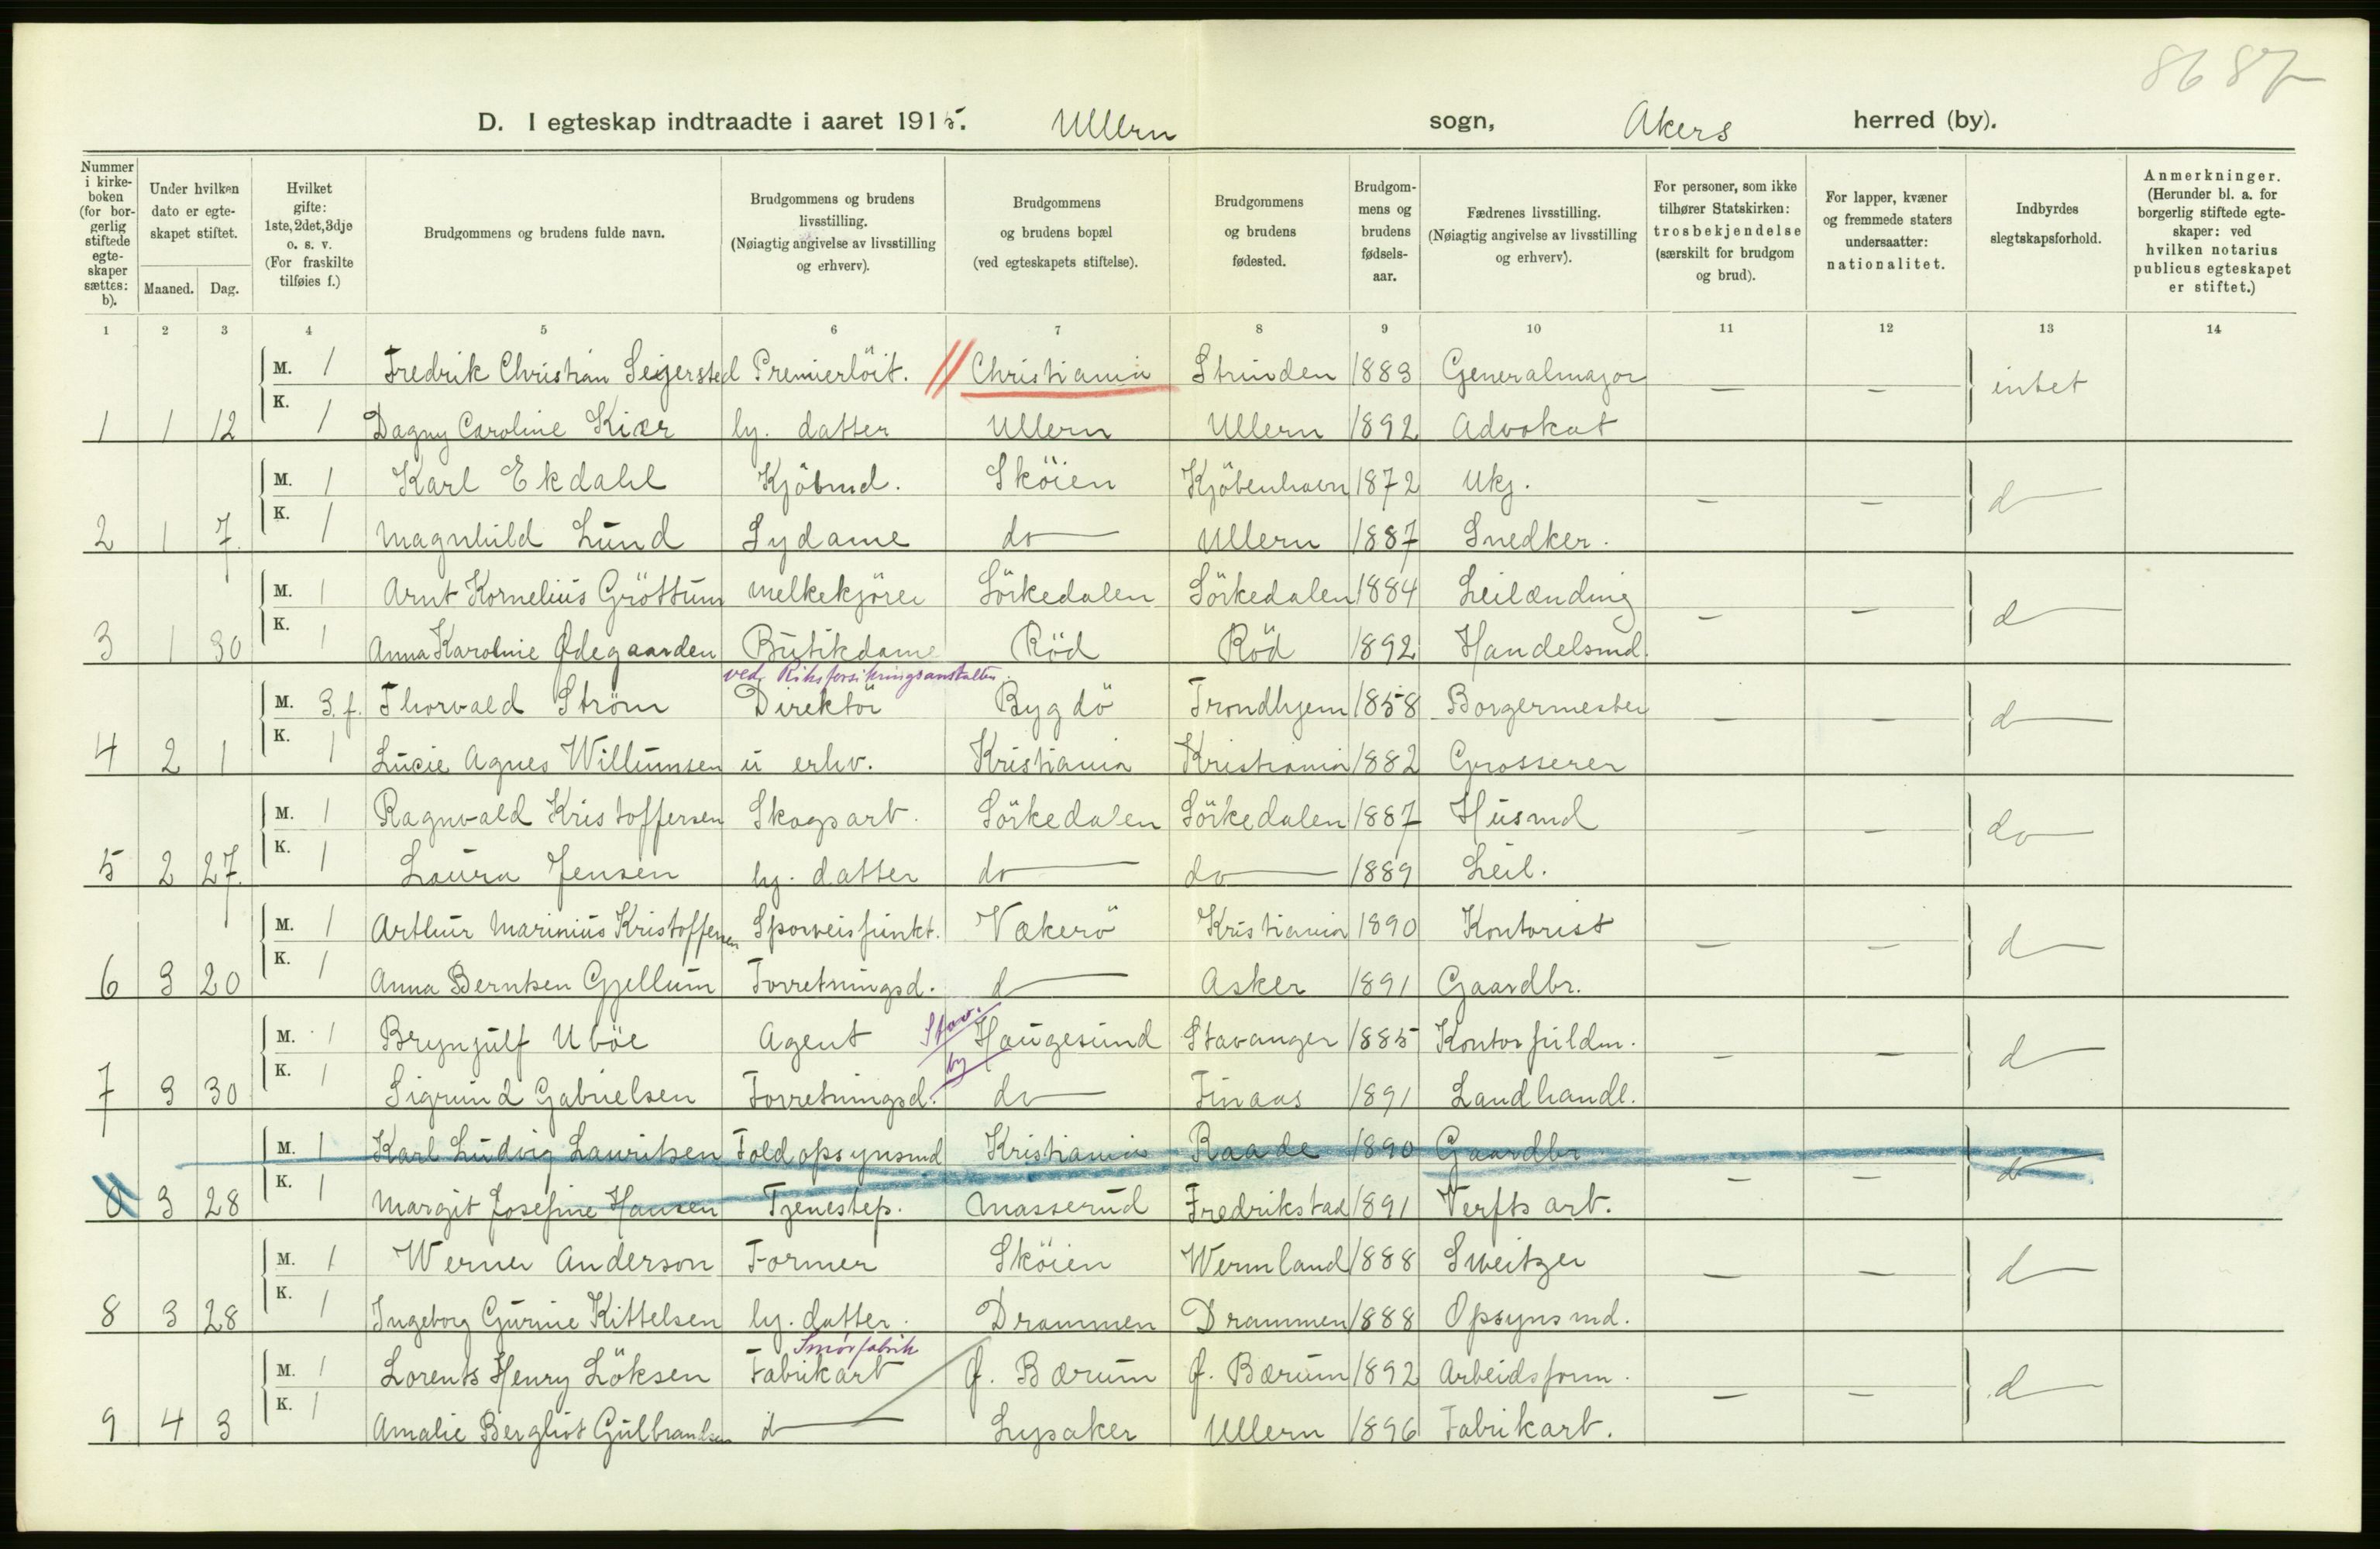 86 87
D. I egteskap indtraadte i aaret 1915. Ullern sogn, Akers herred (by).
Nummer i kirkeboken (for borgerlig stiftede egteskaper sættes: b).
Under hvilken dato er egteskapet stiftet.
Maaned. Dag.
Hvilket gifte: 1ste, 2det, 3dje o. s. v. (For fraskilte tilføies f.)
Brudgommens og brudens fulde navn.
Brudgommens og brudens livsstilling. (Nøiagtig angivelse av livsstilling og erhverv).
Brudgommens og brudens bopæl (ved egteskapets stiftelse).
Brudgommens og brudens fødested.
Brudgommens og brudens fødselsaar.
Fædrenes livsstilling. (Nøiagtig angivelse av livsstilling og erhverv).
For personer, som ikke tilhører Statskirken: trosbekjendelse (særskilt for brudgom og brud).
For lapper, kvæner og fremmede staters undersaatter: nationalitet.
Indbyrdes slegtskapsforhold.
Anmerkninger. (Herunder bl. a. for borgerlig stiftede egteskaper: ved hvilken notarius publicus egteskapet er stiftet.)
1 2 3 4 5 6 7 8 9 10 11 12 13 14
M. 1 Fredrik Christian Seijersted Premierlöit. Christiania Strinden 1883 Generalmajor — — intet
1 1 12 K. 1 Dagny Caroline Kiær hj. datter Ullern Ullern 1892 Advokat
M. 1 Karl Ekdahl Kjöbmd. Sköien Kjöbenhavn 1872 Ukj. — — d
2 1 7. K. 1 Magnhild Lund Sydame do Ullern 1887 Snedker.
M. 1 Arnt Kornelius Gröttum Melkekjører Sörkedalen Sörkedalen 1884 Leilænding — — d
3 1 30 K. 1 Anna Karoline Ødegaarden Butikdame Röd Röd 1892 Handelsmd.
ved Riksforsikringsanstalten.
M. 3. f. Thorvald Ström Direktör Bygdö Trondhjem 1858 Borgermester — — d
4 2 1 K. 1 Lucie Agnes Willumsen u erhv. Kristiania Kristiania 1882 Grosserer
M. 1 Ragnvald Kristoffersen Skogsarb. Sörkedalen Sörkedalen 1887 Husmd — — do
5 2 27. K. 1 Laura Jensen hj. datter do do 1889 Leil.
M. 1 Arthur Marinius Kristoffersen Sporveisfunkt. Vækerö Kristiania 1890 Kontorist — — d
6 3 20 K. 1 Anna Berntsen Gjellum Forretningsd. d Asker 1891 Gaardbr.
Stav. by
M. 1 Brynjulf Uböe Agent Haugesund Stavanger 1885 Kontorfuldm. — — d
7 3 30 K. 1 Sigrund Gabrielsen Forretningsd. do Finaas 1891 Landhandl.
M. 1 Karl Ludvig Lauritsen Toldopsynsmd Kristiania Raade 1890 Gaardbr — — d
3 28 K. 1 Margit Josefine Hansen Tjenestep. Masserud Fredrikstad 1891 Verfts arb.
M. 1 Werner Anderson Former Sköien Wermland 1888 Sveitzer — — d
8 3 28 K. 1 Ingeborg Gurine Kittelsen hj. datter. Drammen Drammen 1888 Opsynsmd.
Smörfabrik
M. 1 Lorents Henry Löksen Fabrikarb Ø. Bærum Ø. Bærum 1892 Arbeidsform. — — d
9 4 3 K. 1 Amalie Bergliot Gulbrandsen d Lysaker Ullern 1896 Fabrikarb.